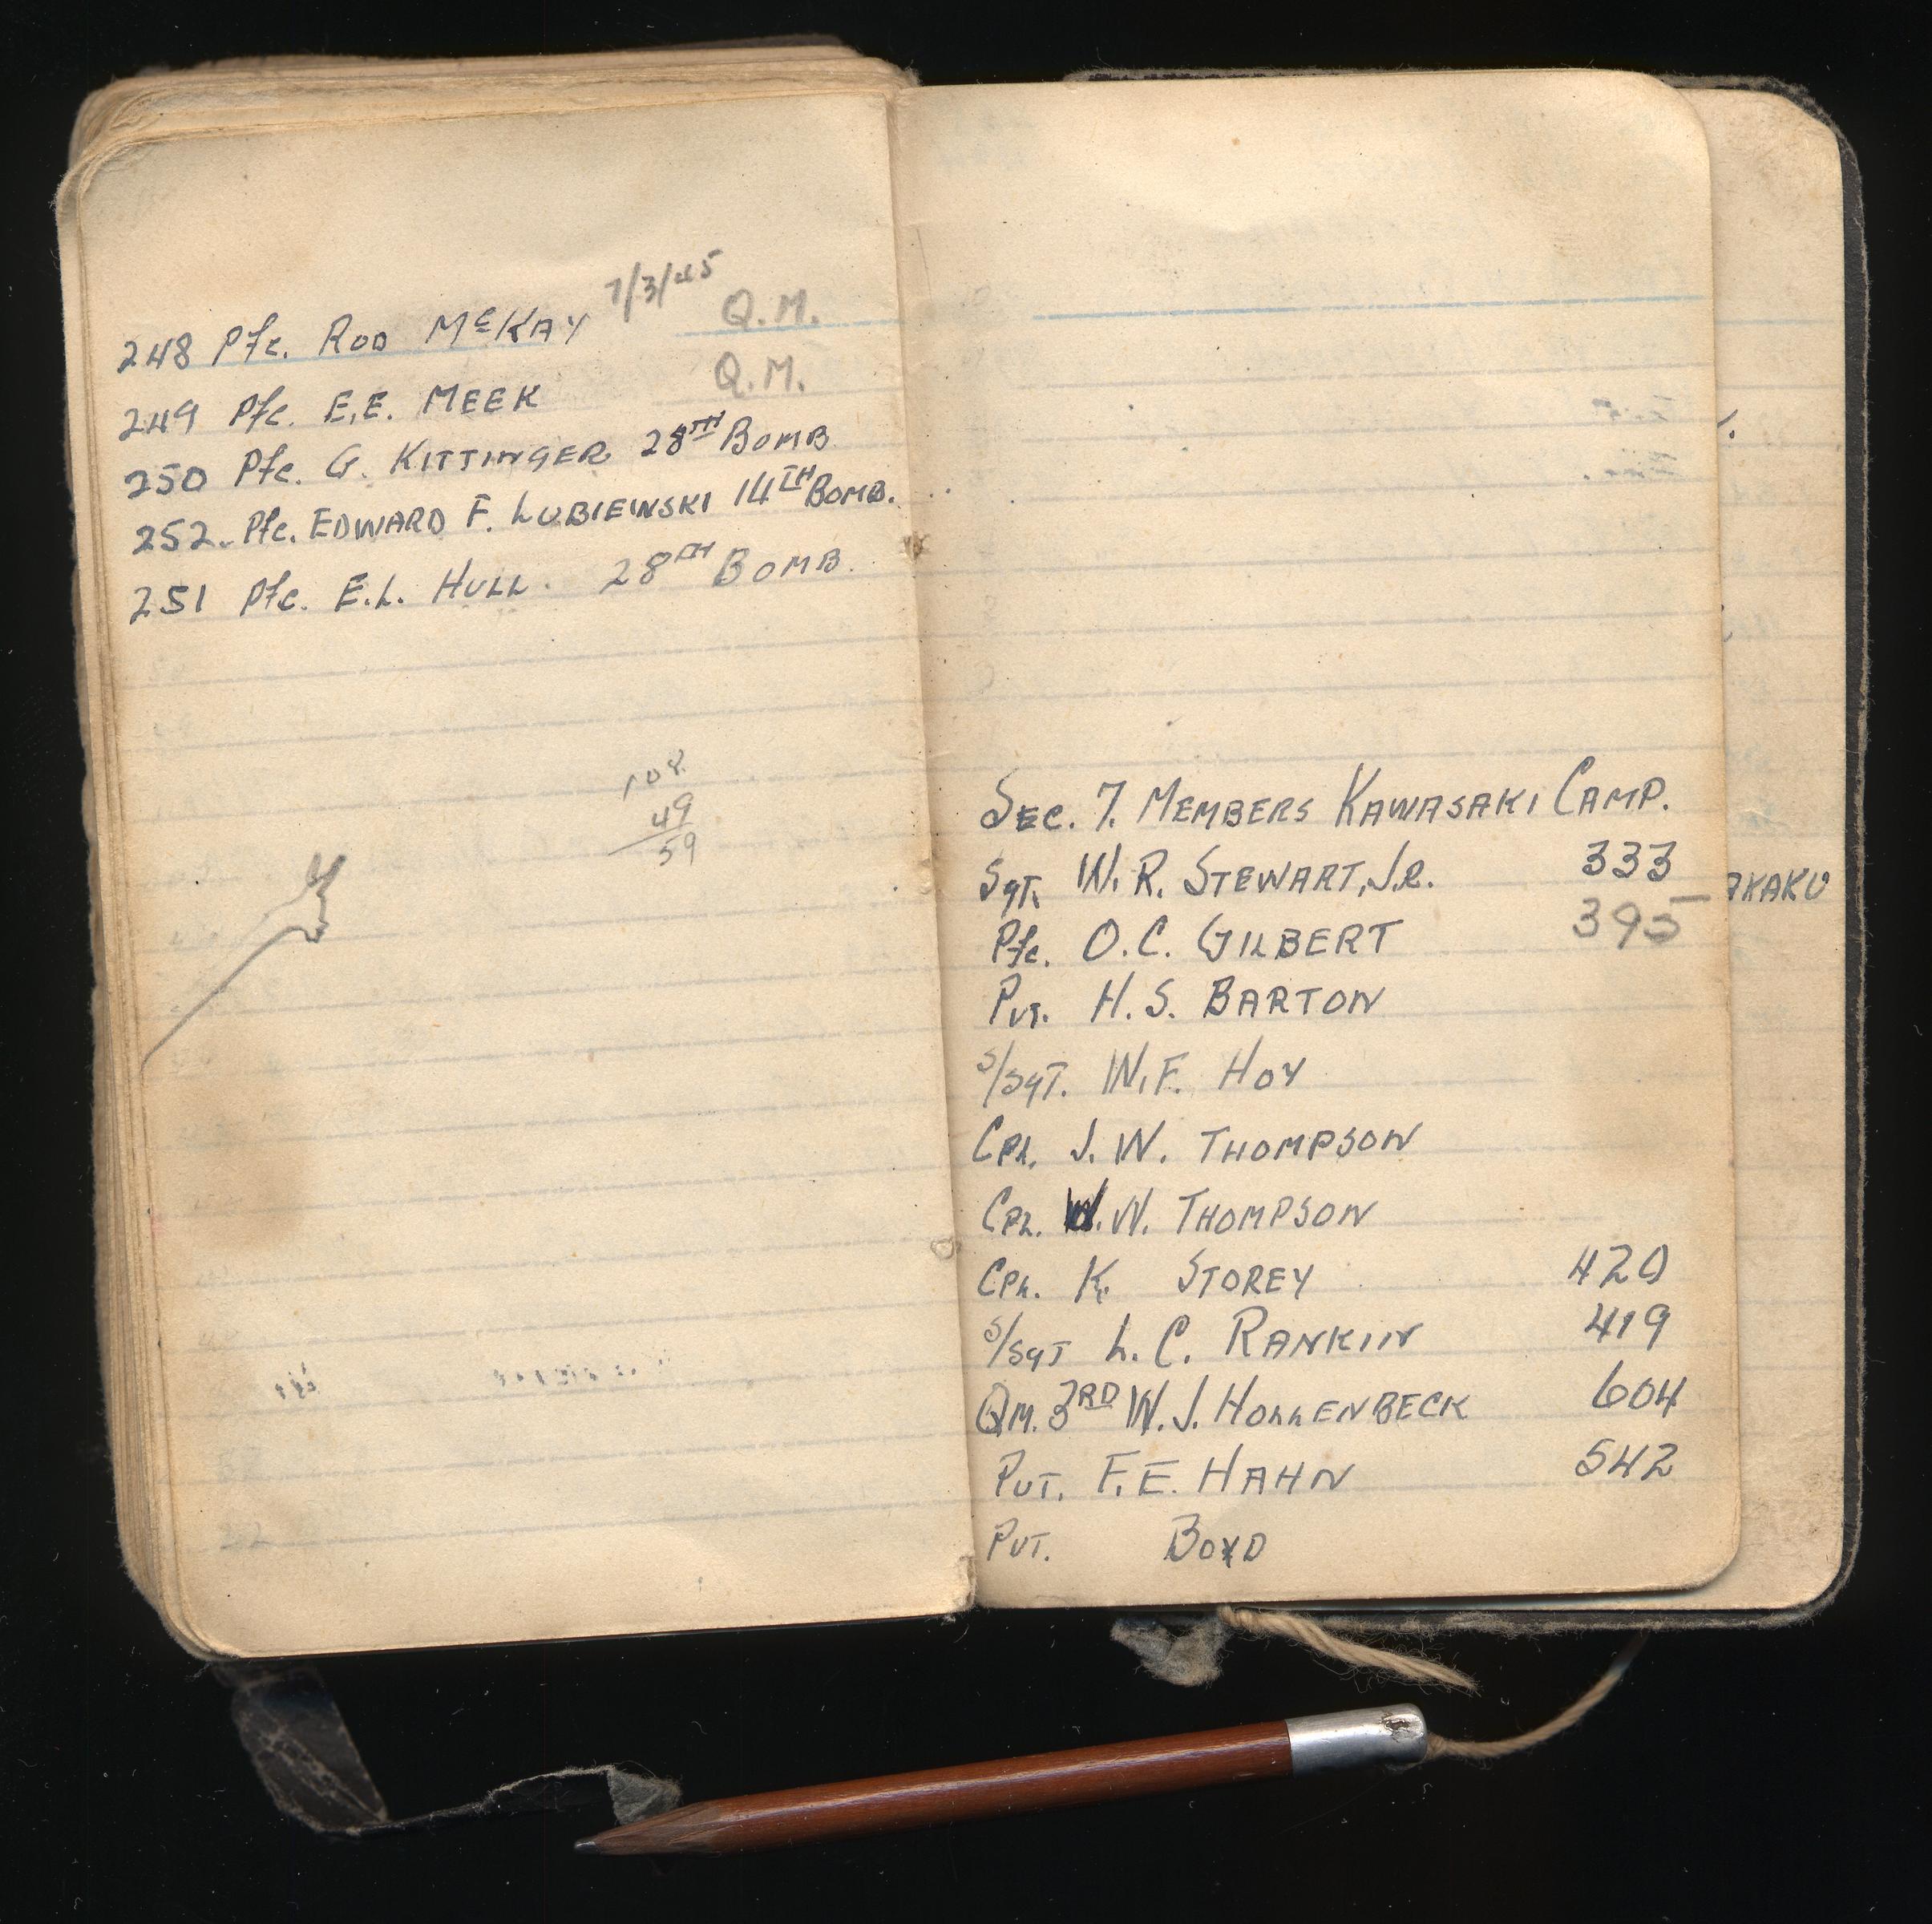 248 Pfc. ROD McKAY 7/3/45 Q.M.
249 Pfc. E.E. MEEK Q.M.
250 Pfc. G. KITTINGER 28TH BOMB
252. Pfc. EDWARD F. LUBIEWSKI 14TH BOMB.
251 Pfc. E.L. HULL. 28TH BOMB.
108
49
59
SEC. 7. MEMBERS KAWASAKI CAMP.
SgT. W. R. STEWART, JR. 333
Pfc. O. C. GILBERT 395
PVT. H. S. BARTON
S/SgT. W. F. HOY
CPL. J. W. THOMPSON
CPL. W. W. THOMPSON
CPL. K. STOREY 420
S/SgT L. C. RANKIN 419
QM. 3RD W. J. HOLLENBECK 604
PVT. F. E. HAHN 542
PVT. BOYD
AKAKU